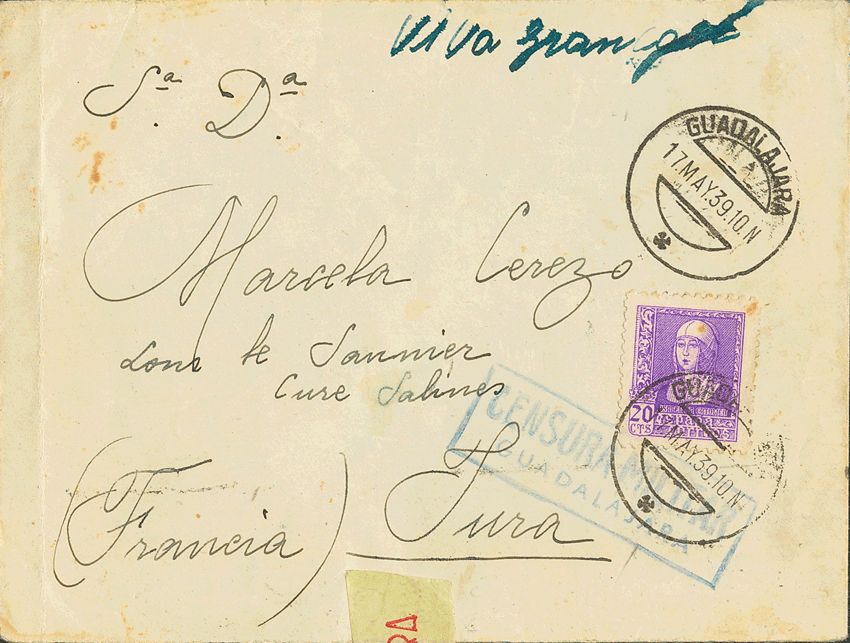 Viva Franco
Sª. Dª.
GUADALAJARA
17.MAY.39.10.N
Marcela Cerezo
Lons le Saunier
Cure Salines
20
CTS
GUADAL
17.MAY.39.10.N
CENSURA MILITAR
GUADALAJARA
Jura
(Francia)
RA